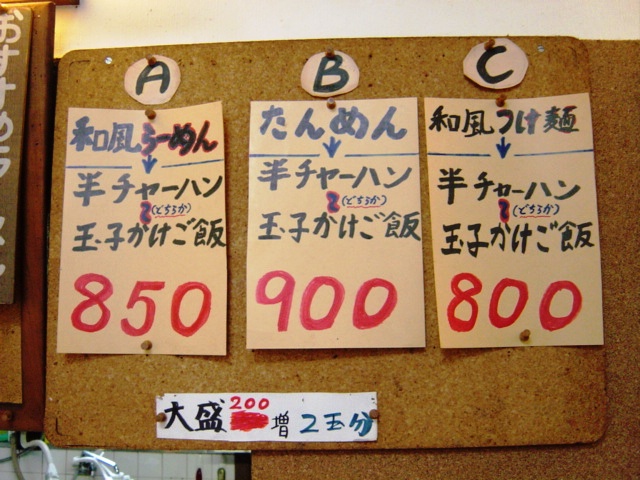 おすすめラーメン
A
和風らーめん
半チャーハン
(どちらか)
玉子かけご飯
850
B
たんめん
半チャーハン
(どちらか)
玉子かけご飯
900
C
和風つけ麺
半チャーハン
(どちらか)
玉子かけご飯
800
大盛 200 増 2玉分